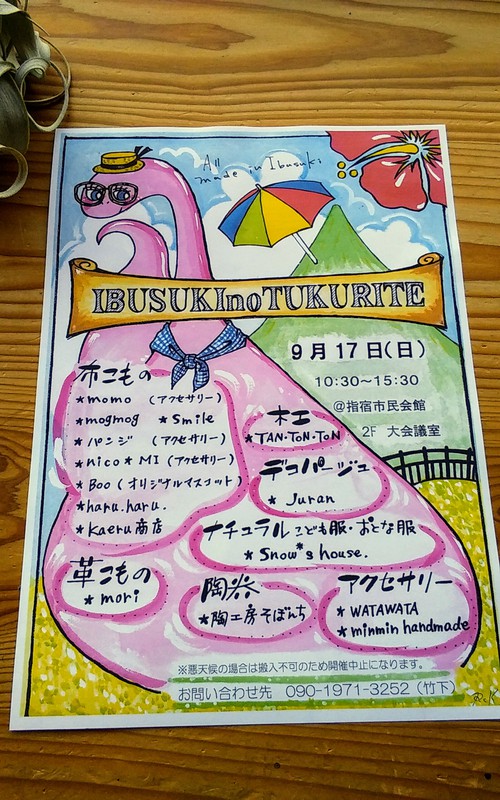 All
made in Ibusuki
IBUSUKInoTUKURITE
9月17日(日)
10:30～15:30
@指宿市民会館
2F 大会議室
布こもの
★momo (アクセサリー)
★mogmog ★Smile
★パンジ (アクセサリー)
★nico★MI (アクセサリー)
★Boo (オリジナルマスコット)
★haru.haru.
★Kaeru商店
木工
★TAN・TON・TON
デコパージュ
★Juran
ナチュラルこども服・おとな服
★Snow*s house.
革こもの
★mori
陶器
★陶工房そぼんち
アクセサリー
★WATAWATA
★minmin handmade
※悪天候の場合は搬入不可のため開催中止になります。
お問い合わせ先 090-1971-3252(竹下)